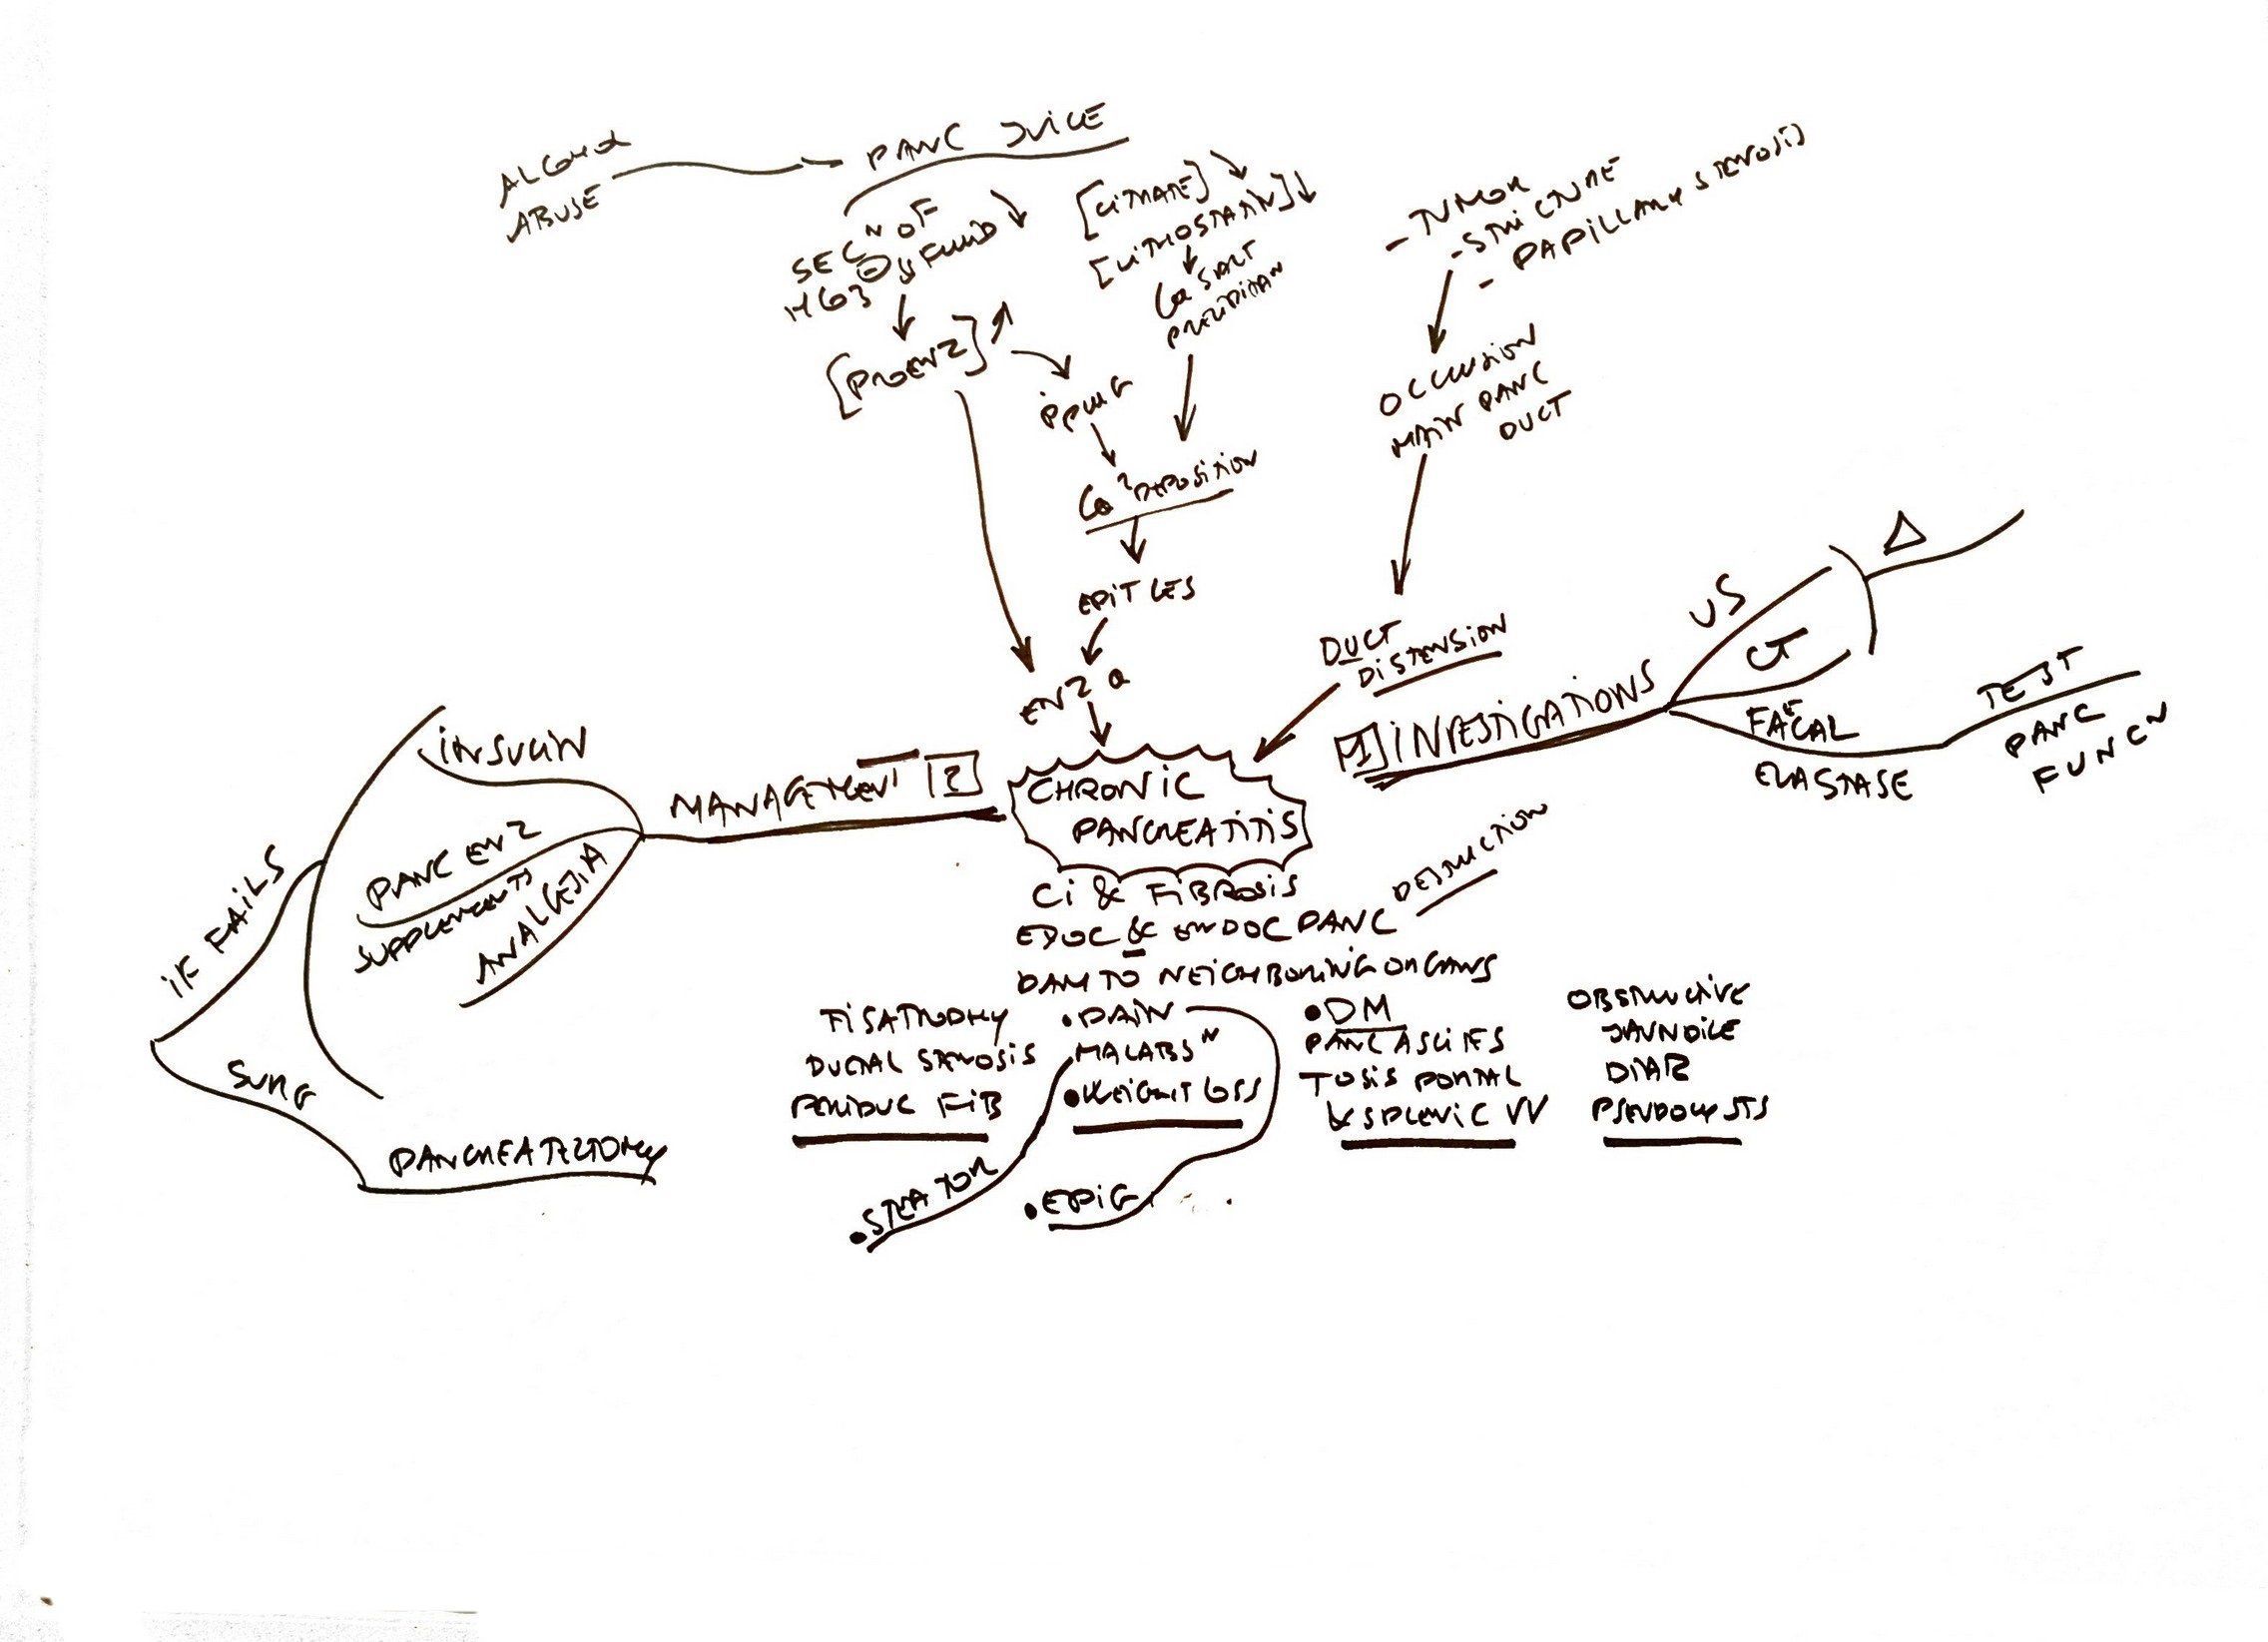 ALCOHOL
ABUSE
PANC JUICE
SEC^N OF
HCO3⊖ & FLUID ↓
[PROENZ] ↑
[CITRATE] ↓
[LITHOSTATIN] ↓
Ca SALT
PPLUG
Ca DEPOSITION
EPIT LES
ENZ a
- TUMOR
- STRICTURE
- PAPILLARY STENOSIS
OCCLUSION
MAIN PANC
DUCT
DUCT
DISTENSION
CHRONIC
PANCREATITIS
1 INVESTIGATIONS
US
CT
Δ
FAECAL
ELASTASE
TEST
PANC
FUNC^N
MANAGEMENT 2
INSULIN
PANC ENZ
SUPPLEMENTS
ANALGESIA
IF FAILS
SURG
PANCREATECTOMY
CI & FIBROSIS
EXOC & ENDOC PANC DESTRUCTION
DAM TO NEIGHBORING ORGANS
TISATROPHY
DUCTAL STENOSIS
PERIDUC FIB
• PAIN
MALABS^N
• WEIGHT LOSS
• STEATOR
• EPIG
• DM
PANC ASCITES
TOSIS PORTAL
& SPLENIC VV
OBSTRUCTIVE
JAUNDICE
DIAR
PSEUDOCYSTS